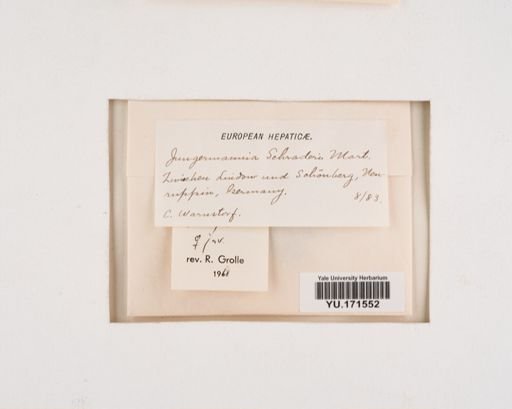 EUROPEAN HEPATICÆ.
Jungermannia Schraderi Mart.
Zwischen Lindow und Schönberg, Neu-
ruppin, Germany.
8/83.
C. Warnstorf.
♀ juv.
rev. R. Grolle
1968
Yale University Herbarium
YU.171552